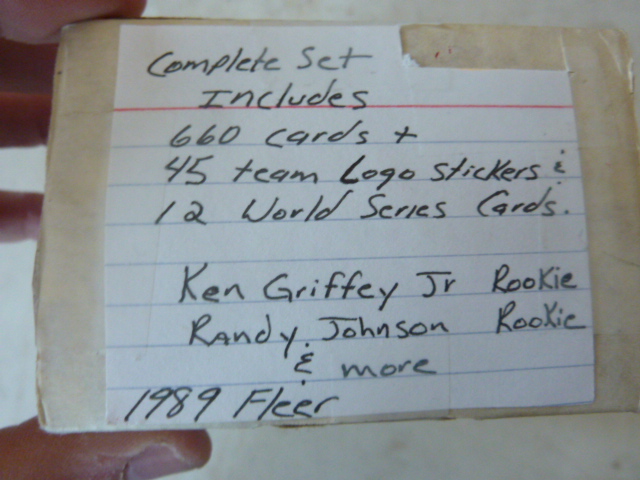 Complete Set
Includes
660 cards +
45 team Logo stickers &
12 World Series Cards.
Ken Griffey Jr Rookie
Randy Johnson Rookie
& more
1989 Fleer